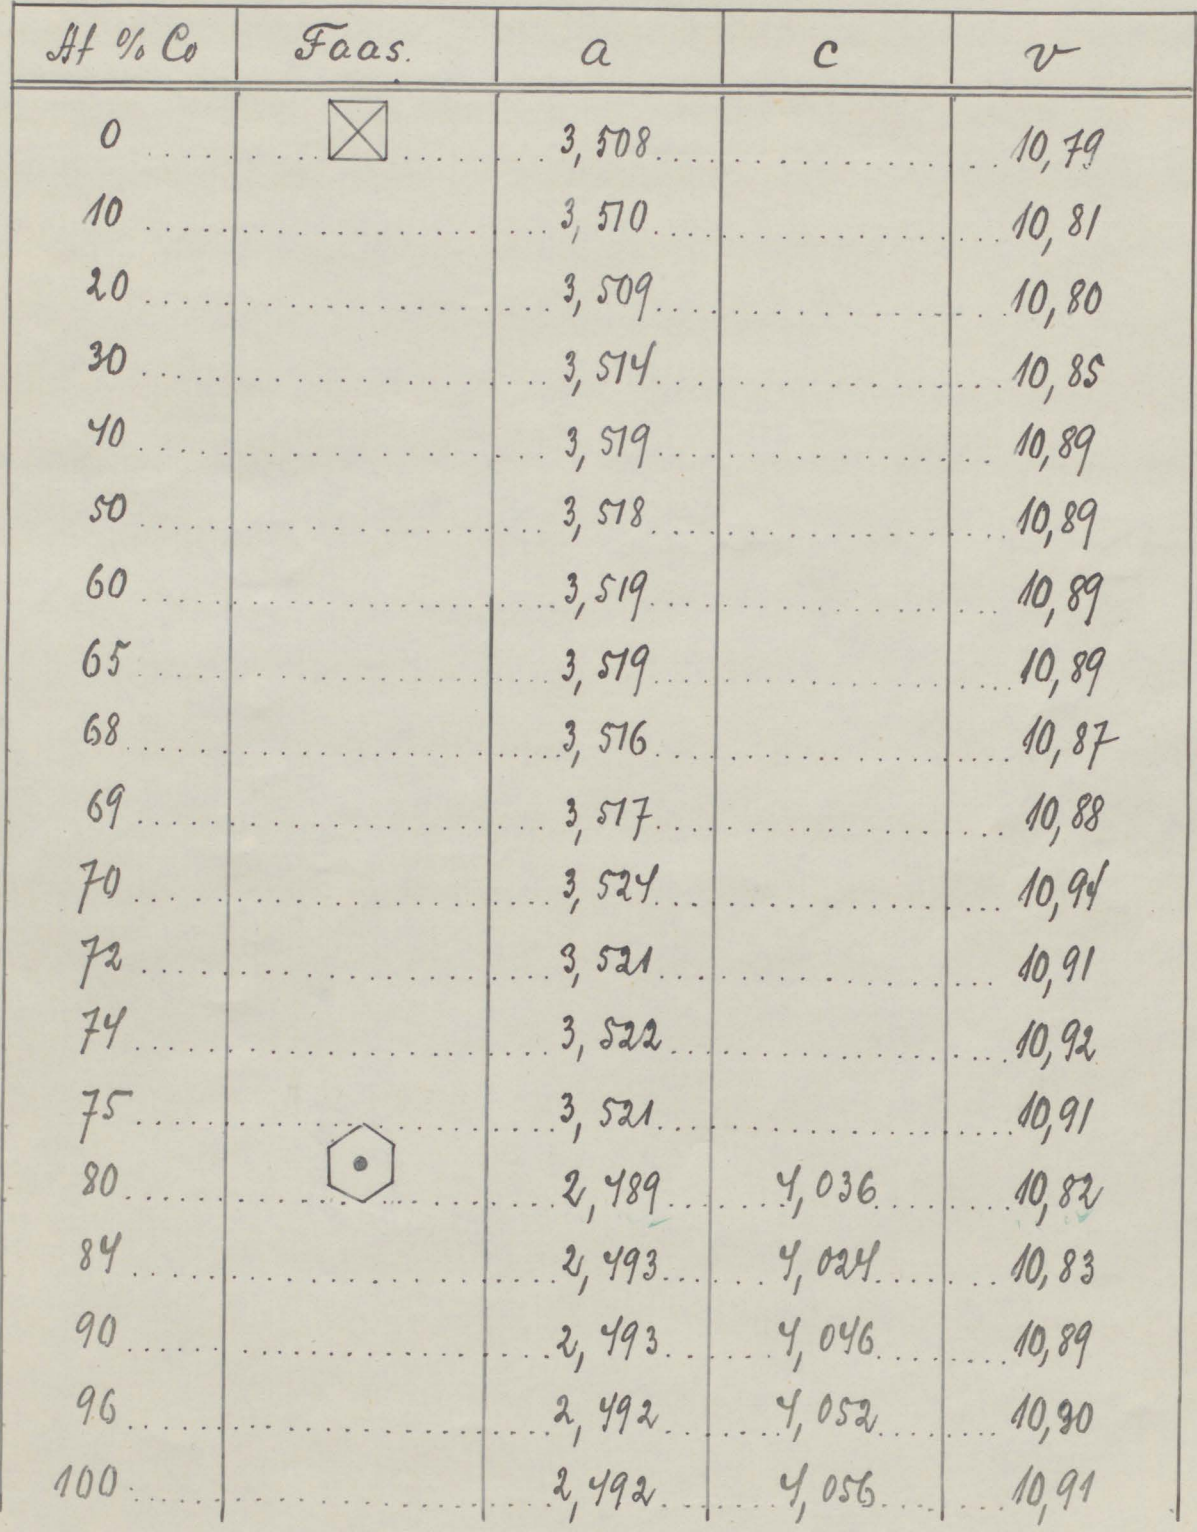 At % Co Faas. a c v
0 3,508 10,79
10 3,510 10,81
20 3,509 10,80
30 3,514 10,85
40 3,519 10,89
50 3,518 10,89
60 3,519 10,89
65 3,519 10,89
68 3,516 10,87
69 3,517 10,88
70 3,524 10,94
72 3,521 10,91
74 3,522 10,92
75 3,521 10,91
80 2,489 4,036 10,82
84 2,493 4,024 10,83
90 2,493 4,046 10,89
96 2,492 4,052 10,90
100 2,492 4,056 10,91